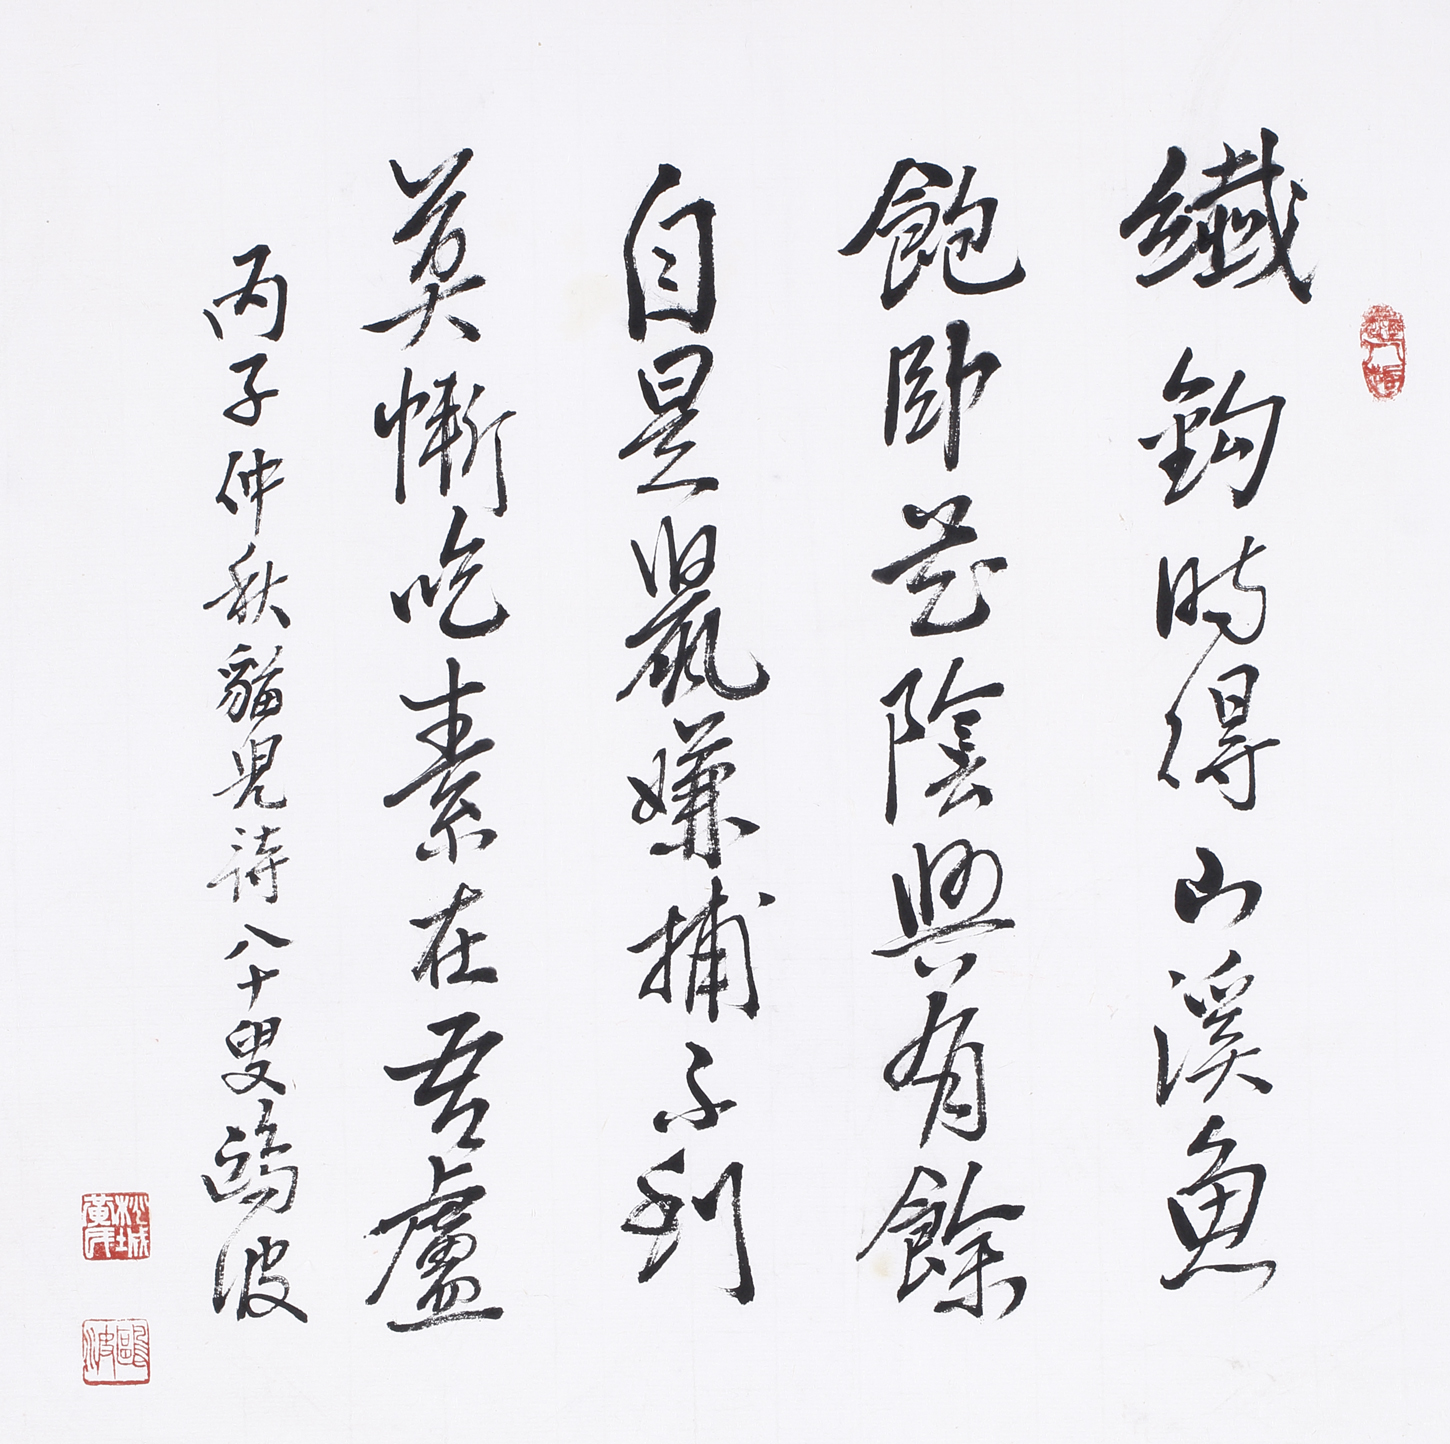 纖鈎時得山溪魚
飽卧花陰興有餘
自是鼠嫌捕不到
莫慚吃素在吾盧
丙子仲秋貓兒詩八十叟鷗波
桃城黃氏
鷗波